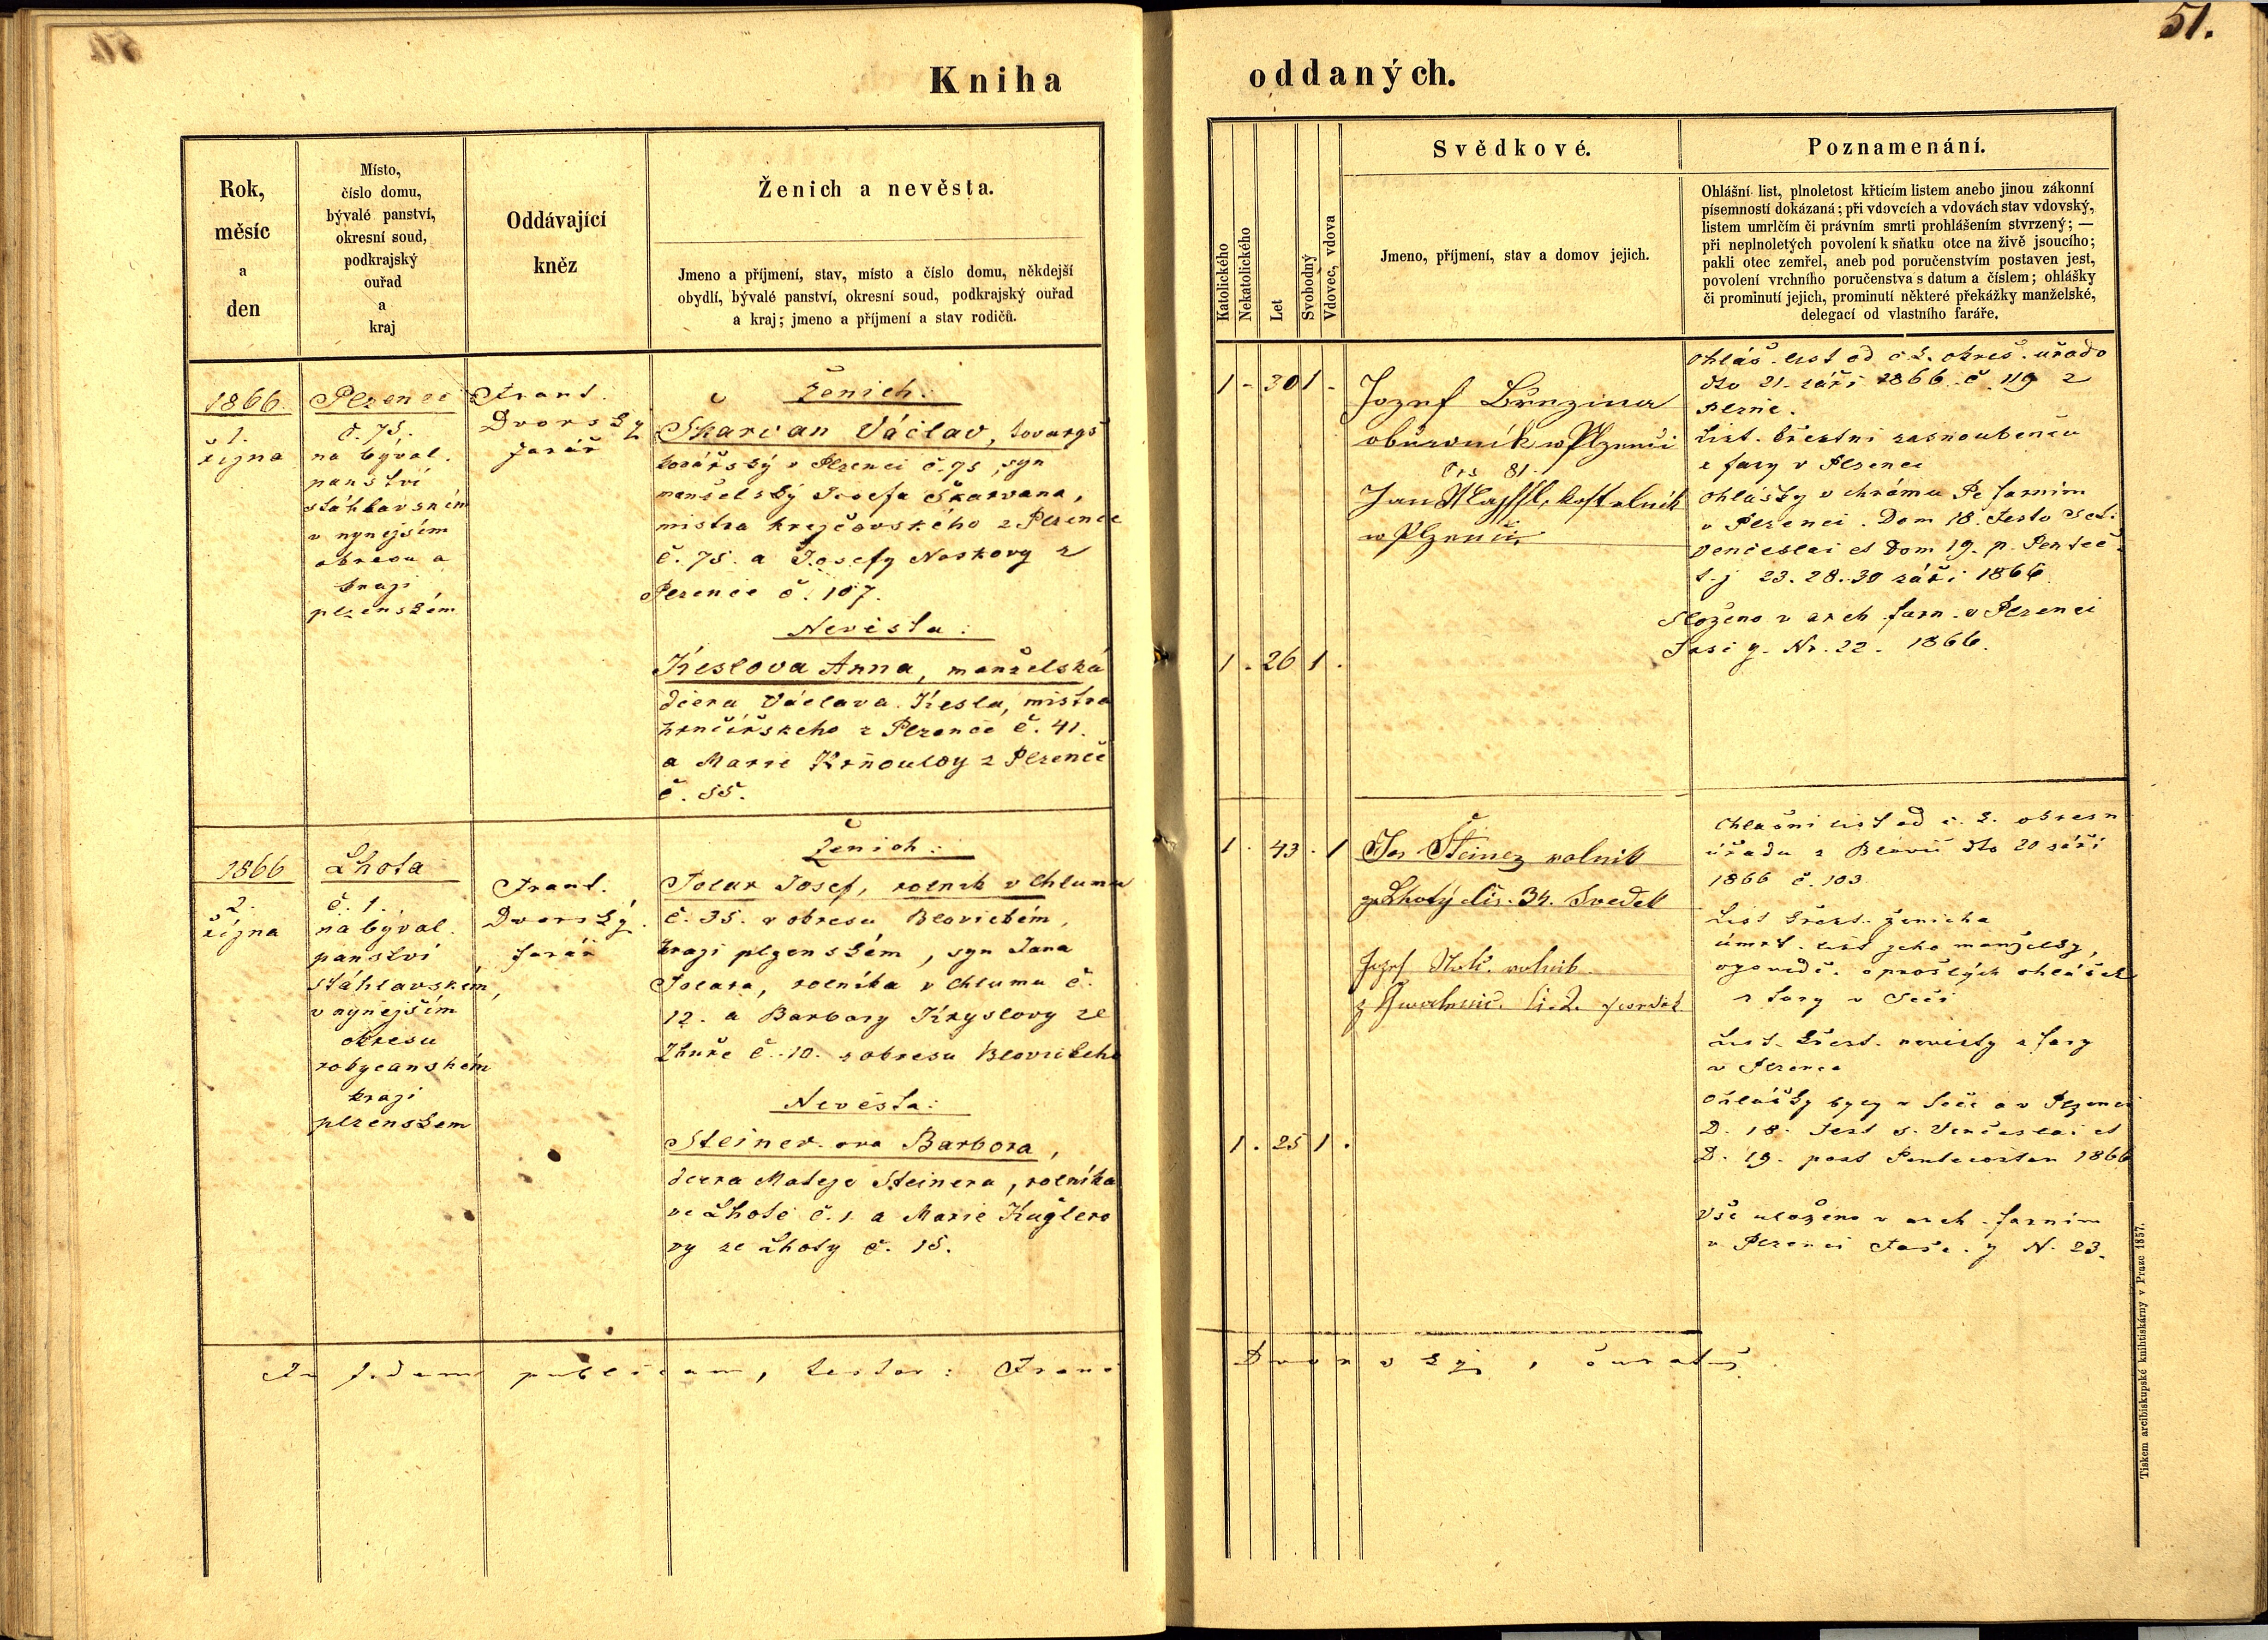 51.
Kniha oddaných.
Rok,
měsíc
a
den
Místo,
číslo domu,
bývalé panství,
okresní soud,
podkrajský
ouřad
a
kraj
Oddávající
kněz
Ženich a nevěsta.
Jmeno a příjmení, stav, místo a číslo domu, někdejší
obydlí, bývalé panství, okresní soud, podkrajský ouřad
a kraj; jmeno a příjmení a stav rodičů.
Katolického
Nekatolického
Let
Svobodný
Vdovec, vdova
Svědkové.
Jmeno, příjmení, stav a domov jejich.
Poznamenání.
Ohlášní list, plnoletost křticím listem anebo jinou zákonní
písemností dokázaná; při vdovcích a vdovách stav vdovský,
listem umrlčím či právním smrti prohlášením stvrzený; —
při neplnoletých povolení k sňatku otce na živě jsoucího;
pakli otec zemřel, aneb pod poručenstvím postaven jest,
povolení vrchního poručenstva s datum a číslem; ohlášky
či prominutí jejich, prominutí některé překážky manželské,
delegací od vlastního faráře.
1866.
1.
října
Plzenec
č. 75.
na býval.
panství
stáhlavském
v nynějším
okresu a
kraji
plzenském
Frant.
Dvorský
farář
Ženich:
Skarvan Václav, tovaryš
kovářský v Plzenci č. 75, syn
manželský Josefa Škarvana,
mistra krejčovského z Plzence
č. 75. a Josefy Noskovy z
Plzence č. 107.
Nevěsta:
Keslova Anna, manželská
dcera Václava Kesla, mistra
hrnčířskeho z Plzence č. 41.
a Marie Krňoulovy z Plzence
č. 55.
1 - 30 1 -
1 . 26 1 .
Jozef Březina
obuwník w Plzenci
čís 81.
Jan, kostelník
w Plzenci
Ohláš. list od c. k. okres. uřado
dto 21. září 1866. č. 119 z
Plzně.
List. křestní zasnoubenců
z fary v Plzenci
Ohlášky v chrámu Pe farním
v Plzenci. Dom 18. Festo Sct.
Venceslai et Dom 19. p. Pentec.
t. j 23. 28. 30 září 1866.
Složeno v arch farn. v Plzenci
Fasc y. Nr. 22. 1866.
1866
2.
října
Lhota
č. 1.
na býval.
panství
stáhlavském,
v nynějším
okresu
rokycanském
kraji
plzenskem
Frant.
Dvorský.
farář
Ženich:
Tolar Josef, rolník v Chlumu
č. 35. v okresu Blovickém,
kraji plzenském, syn Jana
Tolara, rolníka v Chlumu č.
12. a Barbory Kryslovy ze
Zhuře č. 10. z okresu Blovickeho
Nevěsta:
Steinerova Barbora,
dcera Mateje Steinera, rolníka
ve Lhotě č. 1 a Marie Kuglero
vy ze Lhoty č. 15.
1 . 43 . 1
1 . 25 1 .
Jos Šteinez rolnik
ze Lhotý čis. 34. Svedek
Jozef rolnik
z
Ohlašni list od c. k. okresn
úřadu z Blovic dto 20 září
1866 č. 103
List křest. ženicha
úmrt. list jeho manželky,
o prošlých ohlášek
z fary v Seči
List. křest. nevěsty z fary
v Plzenci
Ohlášky byly v Seči a v Plzenci
D. 18. Fest s. Venceslai et
D. 19. post Pentecosten 1866
Vše uloženo v arch. farním
v Plzenci Fasc. y N. 23.
In fidem publicam, testor: Franc
Dvorský, curatus.
Tiskem arcibiskupské knihtiskárny v Praze 1857.